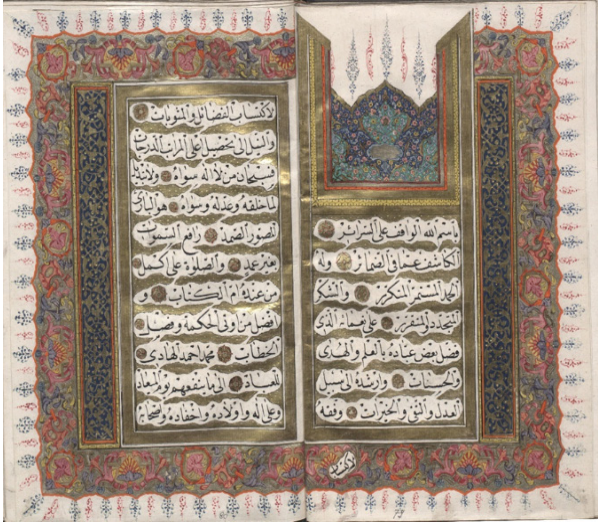 باسم الله الواقف على السرائر
الكاشف عما فى الضمائر وله
الحمد المستمر المتكرر والشكر
المتجدد المستقرر على نعمائه الذى
فضل بعض عباده بالعلم والهدى
والحسنات وارشده الى سبيل
العدل والتقى والخيرات وفقه
لاكتساب
لاكتساب الفضائل والمثوبات
والنيل الى تحصيل على المراتب الدرجات
فسبحان من لا اله سواه ولا ند
لما خلقه وعدله وسواه هو البارئ
المصور الصمد رافع السموات
بغير عمد والصلوة على كمل
من عنده ام الكتاب و
افضل من اوتى الحكمة وفصل
الخطاب محمد احمد الهادى
للعباد الى ما ينفعهم يوم المعاد
وعلى اله واولاده واحفاده واصحابه